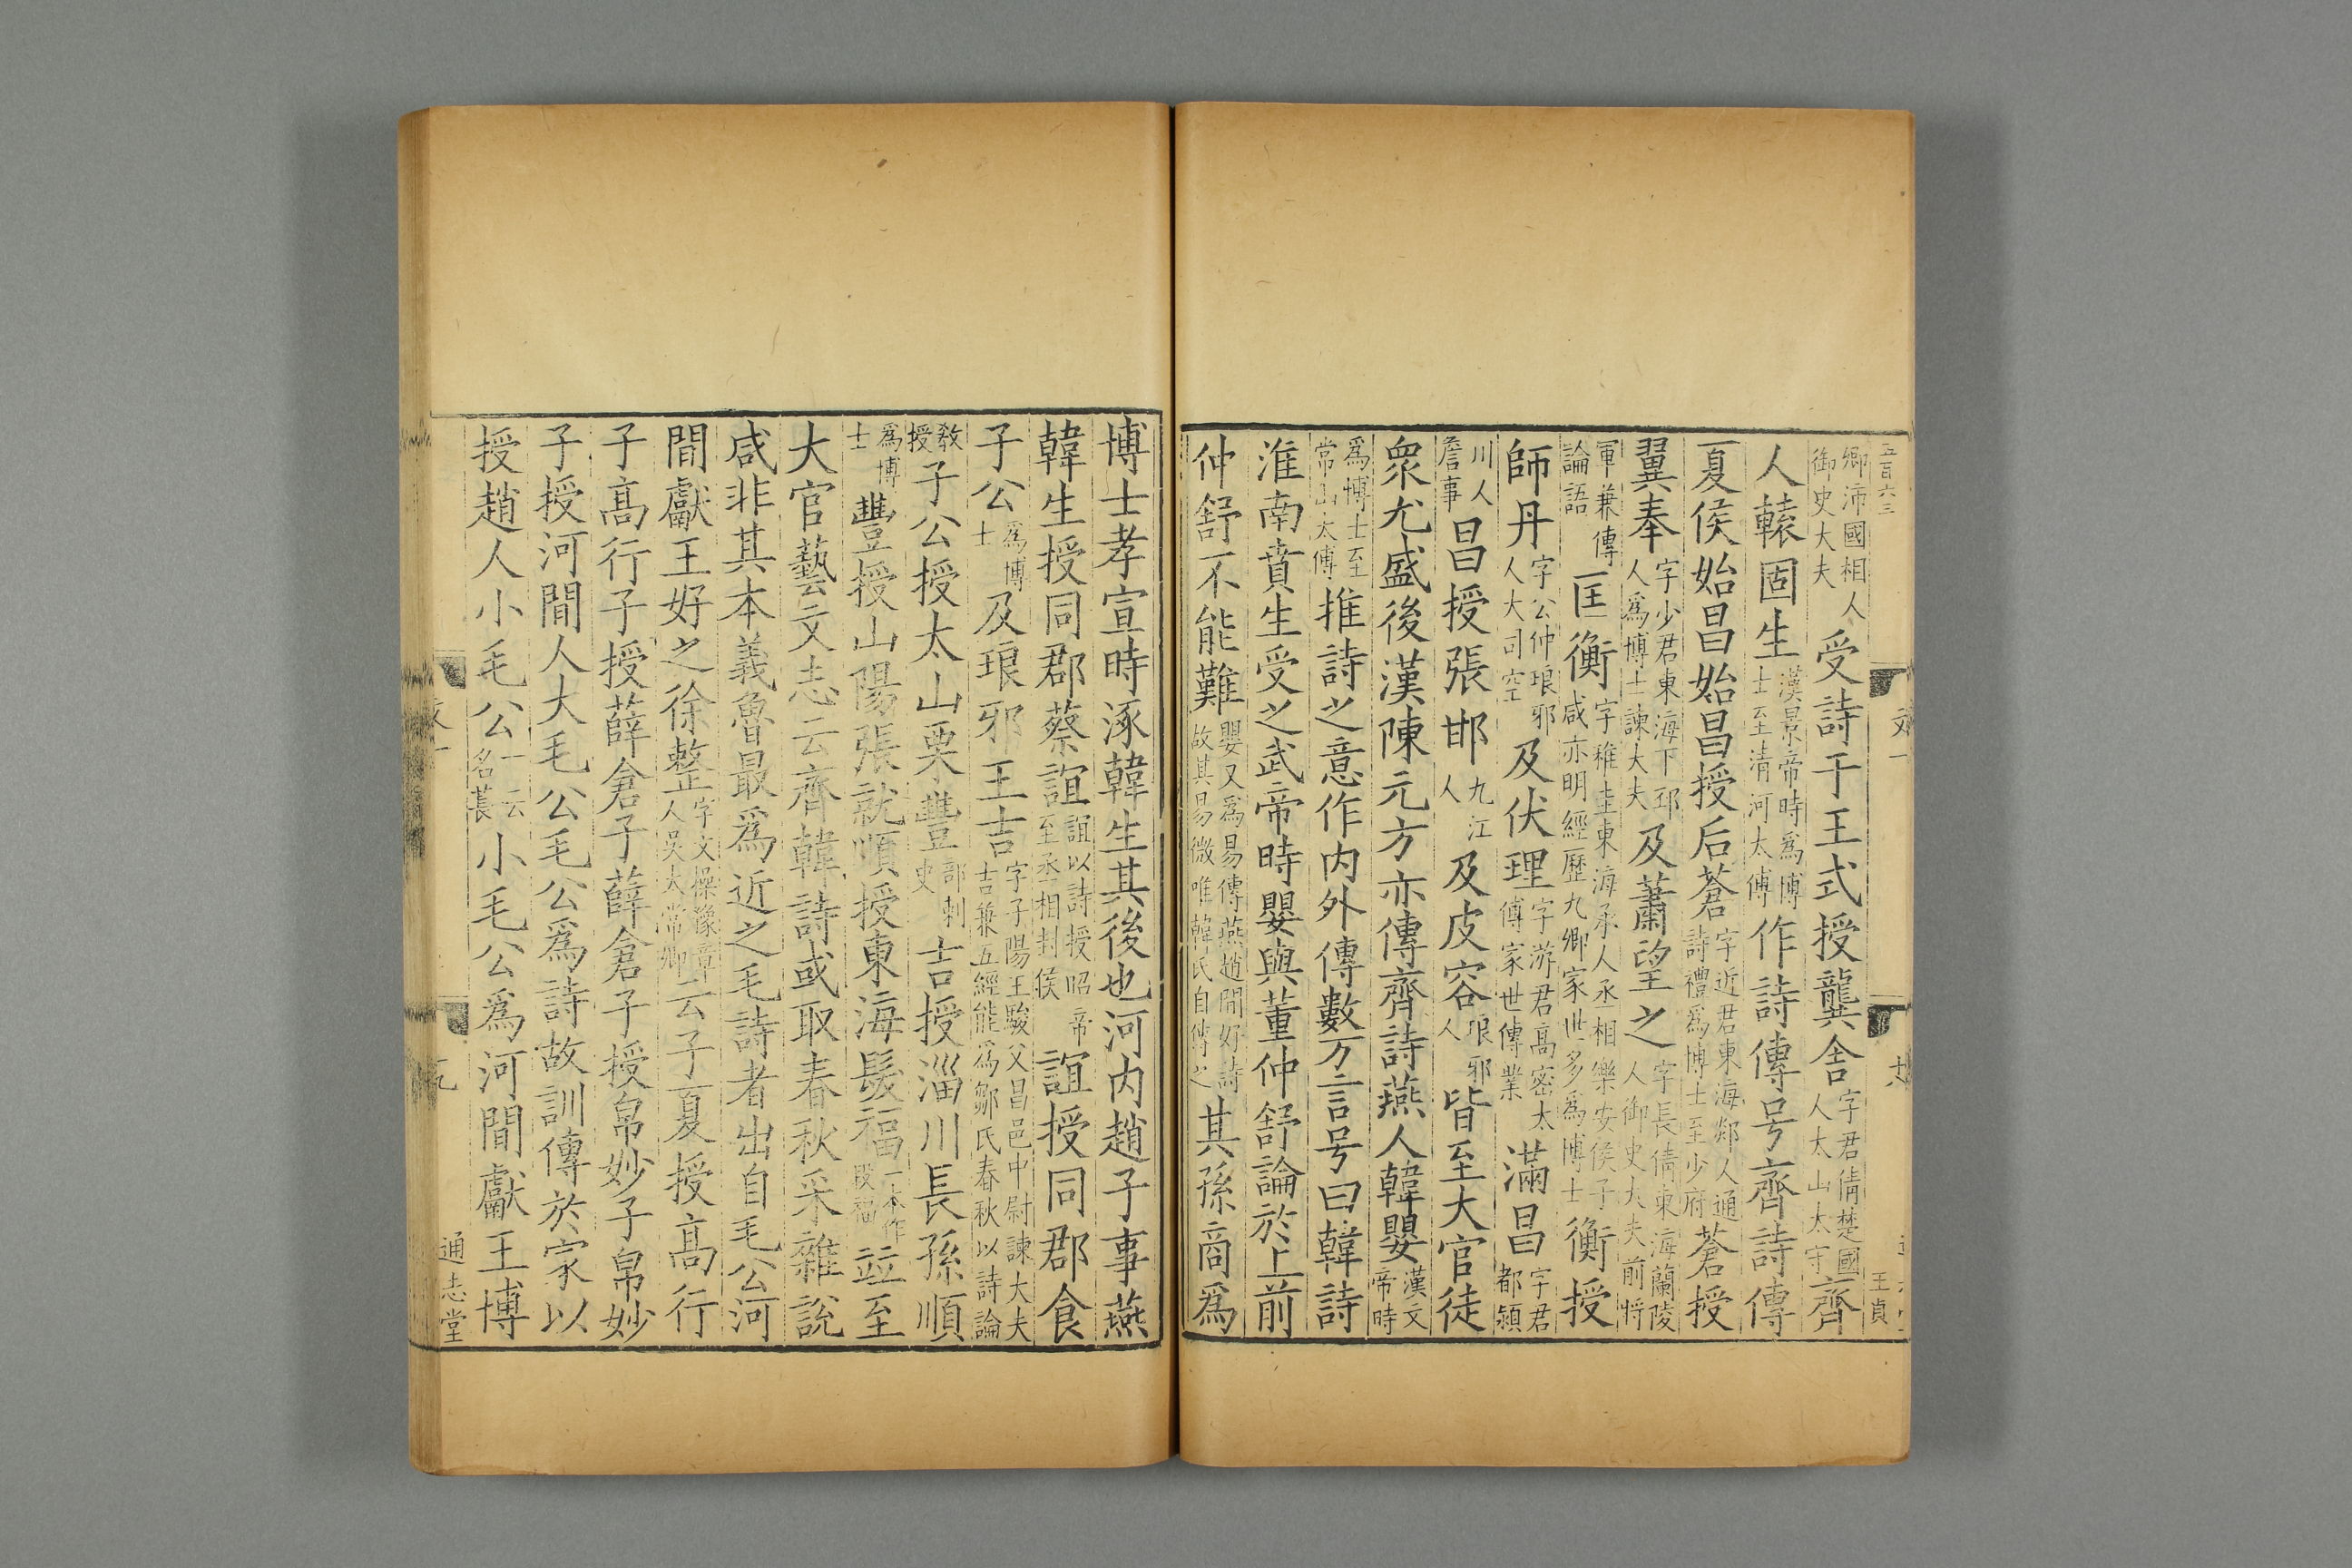 五百六三
王貞
卿沛國相人御史大夫受詩于王式授龔舍字君倩楚國人太山太守齊
人轅固生漢景帝時爲博士至清河太傅作詩傳号齊詩傳
夏侯始昌始昌授后蒼字近君東海郯人通詩禮爲博士至少府蒼授
翼奉字少君東海下邳人爲博士諫大夫及蕭望之字長倩東海蘭陵人御史大夫前將
軍兼傳論語匡衡字稚圭東海承人丞相樂安侯子咸亦明經歷九卿家世多爲博士衡授
師丹字公仲琅邪人大司空及伏理字游君高密太傅家世傳業滿昌字君都潁
川人詹事昌授張邯九江人及皮容琅邪人皆至大官徒
衆尤盛後漢陳元方亦傳齊詩燕人韓嬰漢文帝時
爲博士至常山太傅推詩之意作内外傳數万言号曰韓詩
淮南賁生受之武帝時嬰與董仲舒論於上前
仲舒不能難嬰又爲易傳燕趙間好詩故其易微唯韓氏自傳之其孫商爲
博士孝宣時涿韓生其後也河内趙子事燕
韓生授同郡蔡誼誼以詩授昭帝至丞相封侯誼授同郡食
子公爲博士及琅邪王吉字子陽王駿父昌邑中尉諫大夫吉兼五經能爲鄒氏春秋以詩論
教授子公授太山栗豐部刺史吉授淄川長孫順
爲博士豐授山陽張就順授東海髮福一本作段福竝至
大官藝文志云齊韓詩或取春秋采雜說
咸非其本義魯最爲近之毛詩者出自毛公河
間獻王好之徐整字文操豫章人吳太常卿云子夏授高行
子高行子授薛倉子薛倉子授帛妙子帛妙
子授河間人大毛公毛公爲詩故訓傳於家以
授趙人小毛公一云名萇小毛公爲河間獻王博
通志堂